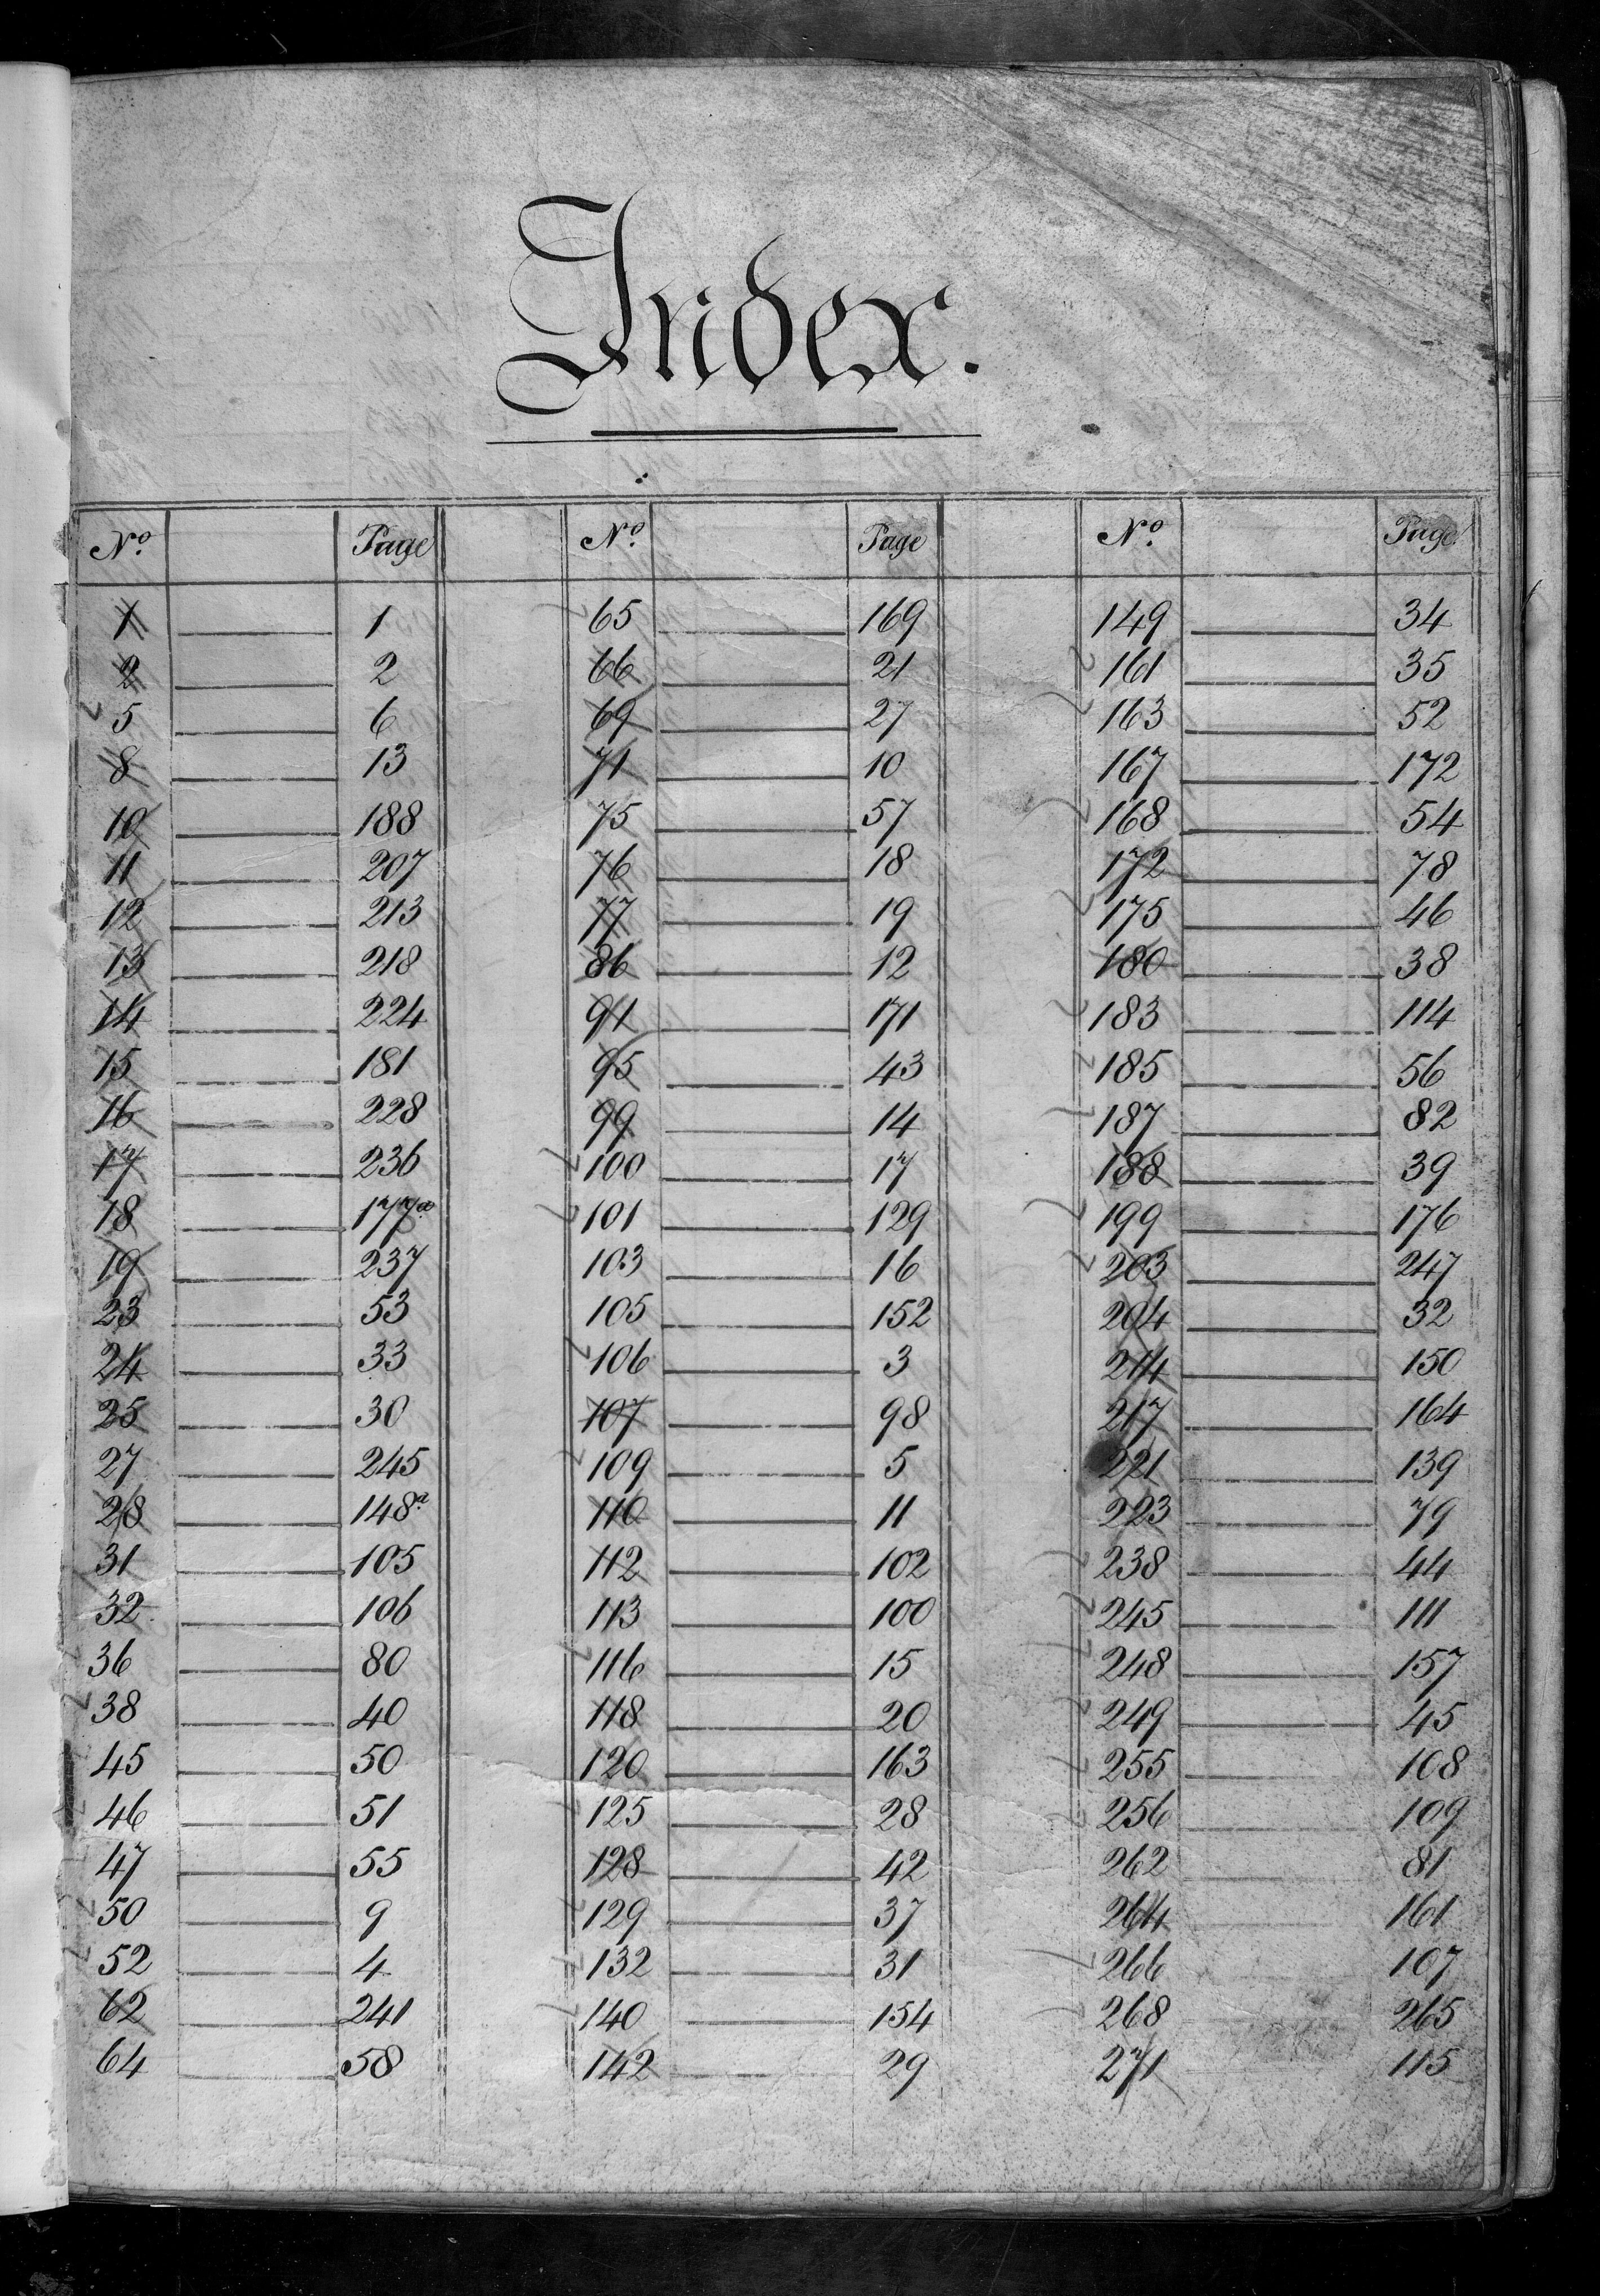 Index.
No. Page No. Page No. Page
1 1 65 169 149 34
2 2 66 21 161 35
5 6 69 27 163 52
8 13 71 10 167 172
10 188 75 57 168 54
11 207 76 18 172 78
12 213 77 19 175 46
13 218 86 12 180 38
14 224 91 171 183 114
15 181 95 43 185 56
16 228 99 14 187 82
17 236 100 17 188 39
18 177 101 129 199 176
19 237 103 16 203 247
23 53 105 152 204 32
24 33 106 3 214 150
25 30 107 98 217 164
27 245 109 5 221 139
28 148a 110 11 223 79
31 105 112 102 238 44
32 106 113 100 245 111
36 80 116 15 248 157
38 40 118 20 249 45
45 50 120 163 255 108
46 51 125 28 256 109
47 55 128 42 262 81
50 9 129 37 264 161
52 4 132 31 266 107
62 241 140 154 268 265
64 58 142 29 271 115